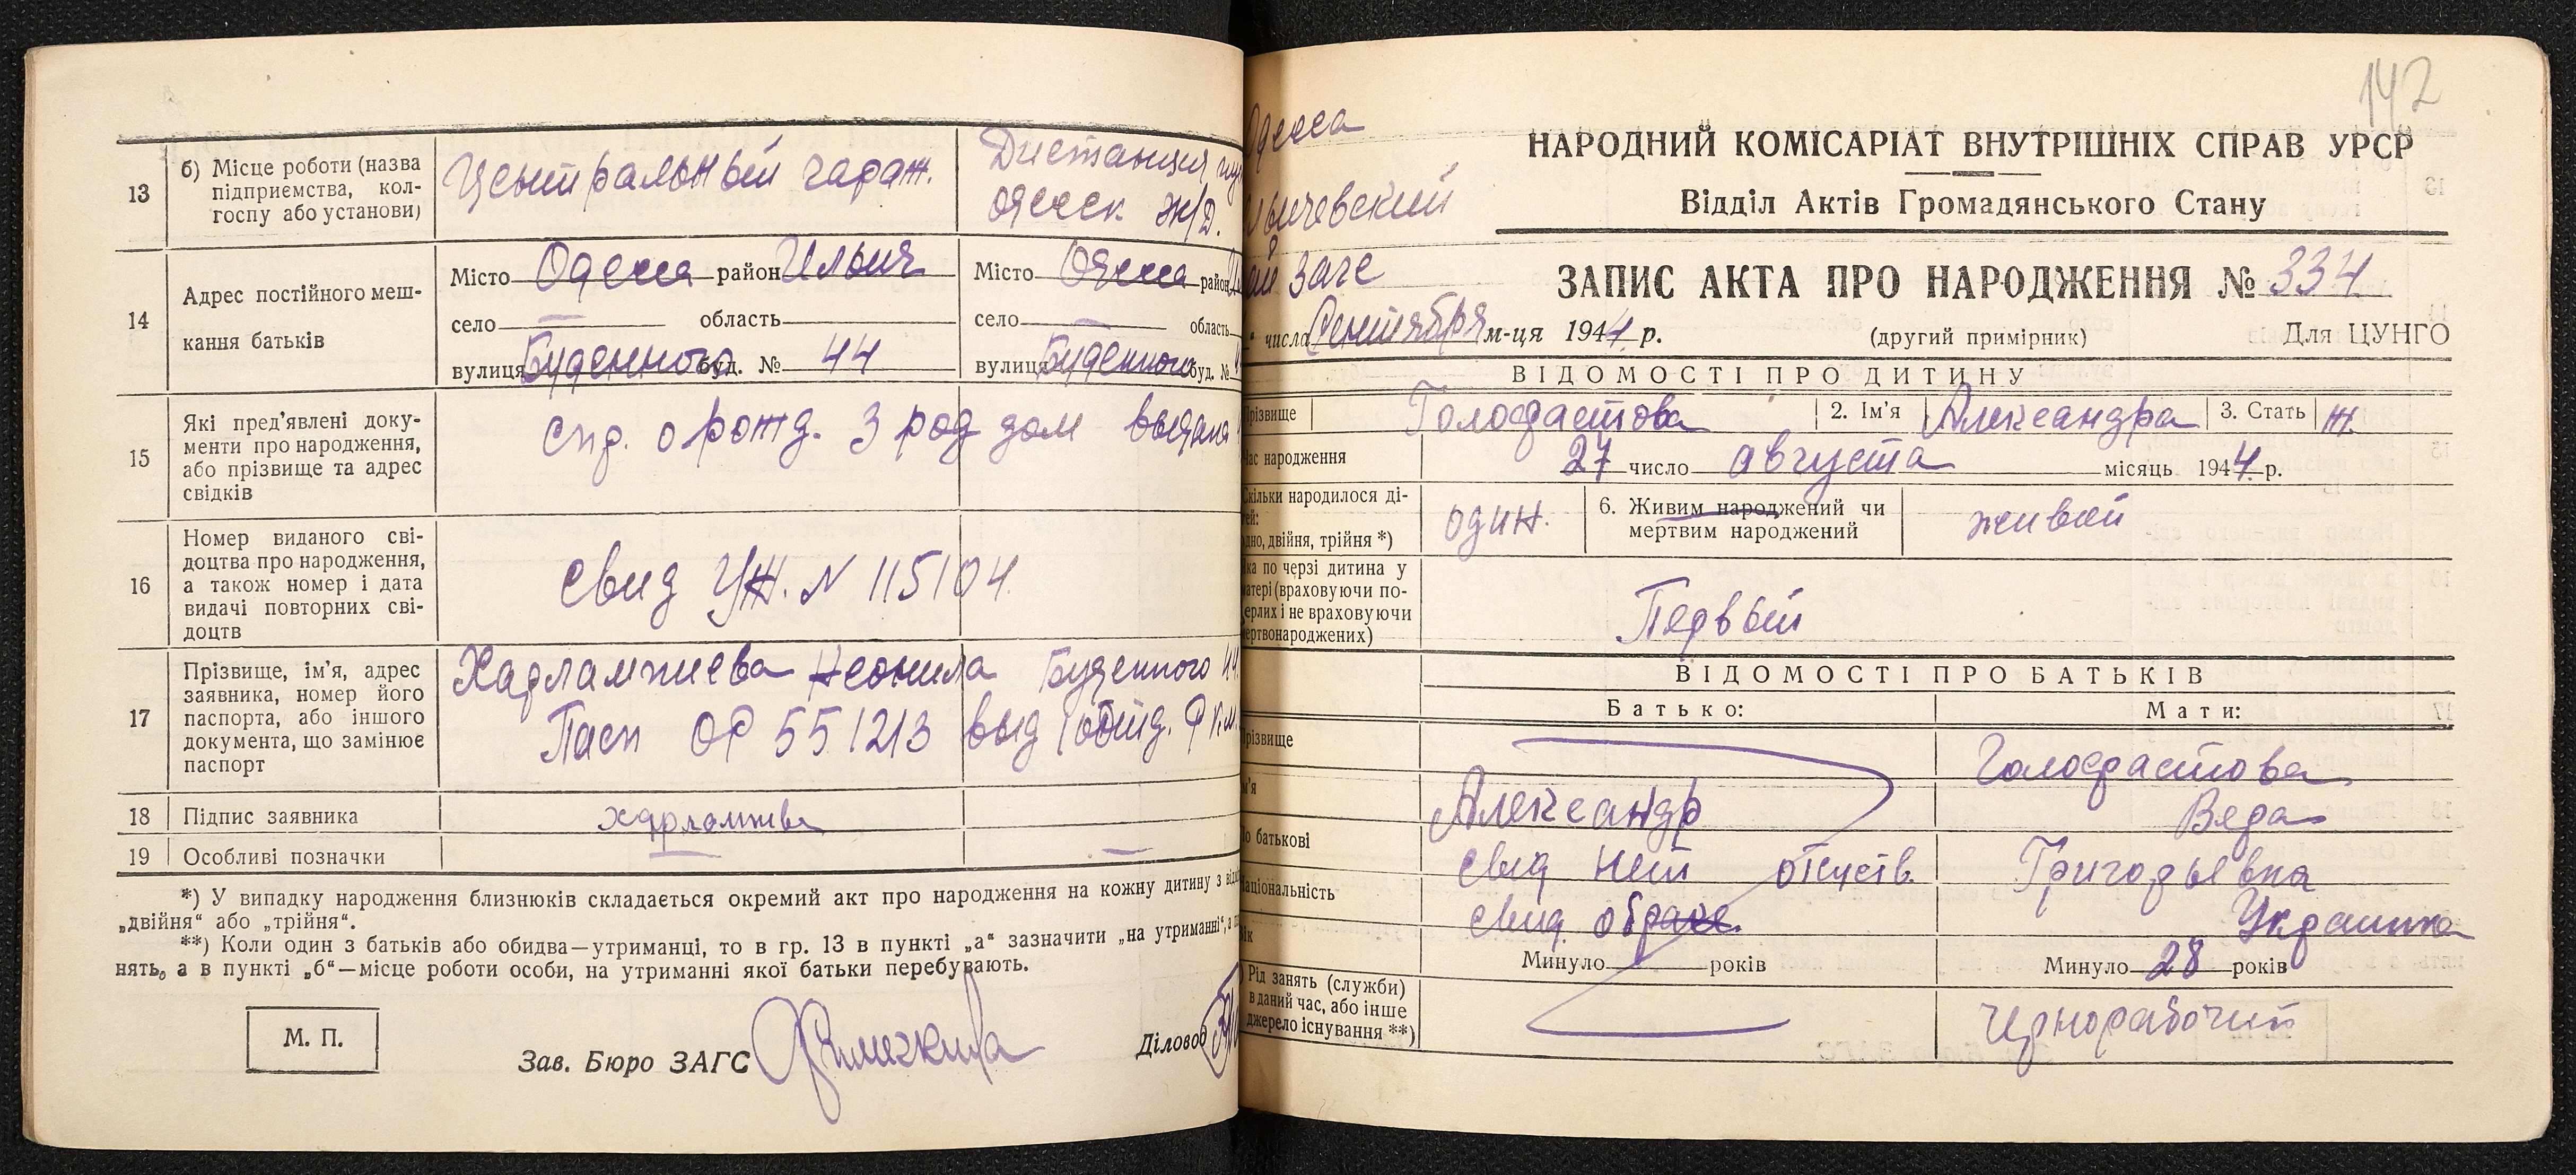 13
б) Місце роботи (назва
підприємства, кол-
госпу або установи)
Центральный гараж.
Дистанция
Одесск. Ж/Д.
14
Адрес постійного меш-
кання батьків
Місто Одесса район Ильич
село — область
вулиця Буденного буд. № 44
Місто Одесса район
село — область
вулиця Буденного буд. №
15
Які пред'явлені доку-
менти про народження,
або прізвище та адрес
свідків
спр. о рожд. 3 род дом выдана
16
Номер виданого сві-
доцтва про народження,
а також номер і дата
видачі повторних сві-
доцтв
свид УЖ. N 115104.
17
Прізвище, ім'я, адрес
заявника, номер його
паспорта, або іншого
документа, що замінює
паспорт
Харлампиева Неонила Буденного 44.
Пасп ОР 551213 выд
18
Підпис заявника
19
Особливі позначки
— —
*) У випадку народження близнюків складається окремий акт про народження на кожну дитину з
„двійня“ або „трійня“.
**) Коли один з батьків або обидва—утриманці, то в гр. 13 в пункті „а“ зазначити „на утриманні“, а
нять, а в пункті „б“—місце роботи особи, на утриманні якої батьки перебувають.
М. П.
Зав. Бюро ЗАГС
Діловод
142
Одесса
НАРОДНИЙ КОМІСАРІАТ ВНУТРІШНІХ СПРАВ УРСР
Відділ Актів Громадянського Стану
загс
ЗАПИС АКТА ПРО НАРОДЖЕННЯ № 334
числа Сентября м-ця 1944 р.
(другий примірник)
Для ЦУНГО
ВІДОМОСТІ ПРО ДИТИНУ
різвище Голофастова 2. Ім'я Александра 3. Стать Ж.
ас народження 27 число августа місяць 1944 р.
кільки народилося ді-
тей:
дно, двійня, трійня *)
один.
6. Живим народжений чи
мертвим народжений
живой
ка по черзі дитина у
атері (враховуючи по-
ерлих і не враховуючи
ертвонароджених)
Первый
ВІДОМОСТІ ПРО БАТЬКІВ
Батько:
Мати:
різвище
Голофастова
м'я
Александр
Вера
о батькові
свид нет отсутств.
Григорьевна
аціональність
свид. о браке
Украинка
ік
Минуло років
Минуло 28 років
Рід занять (служби)
в даний час, або інше
джерело існування **)
Чернорабочий